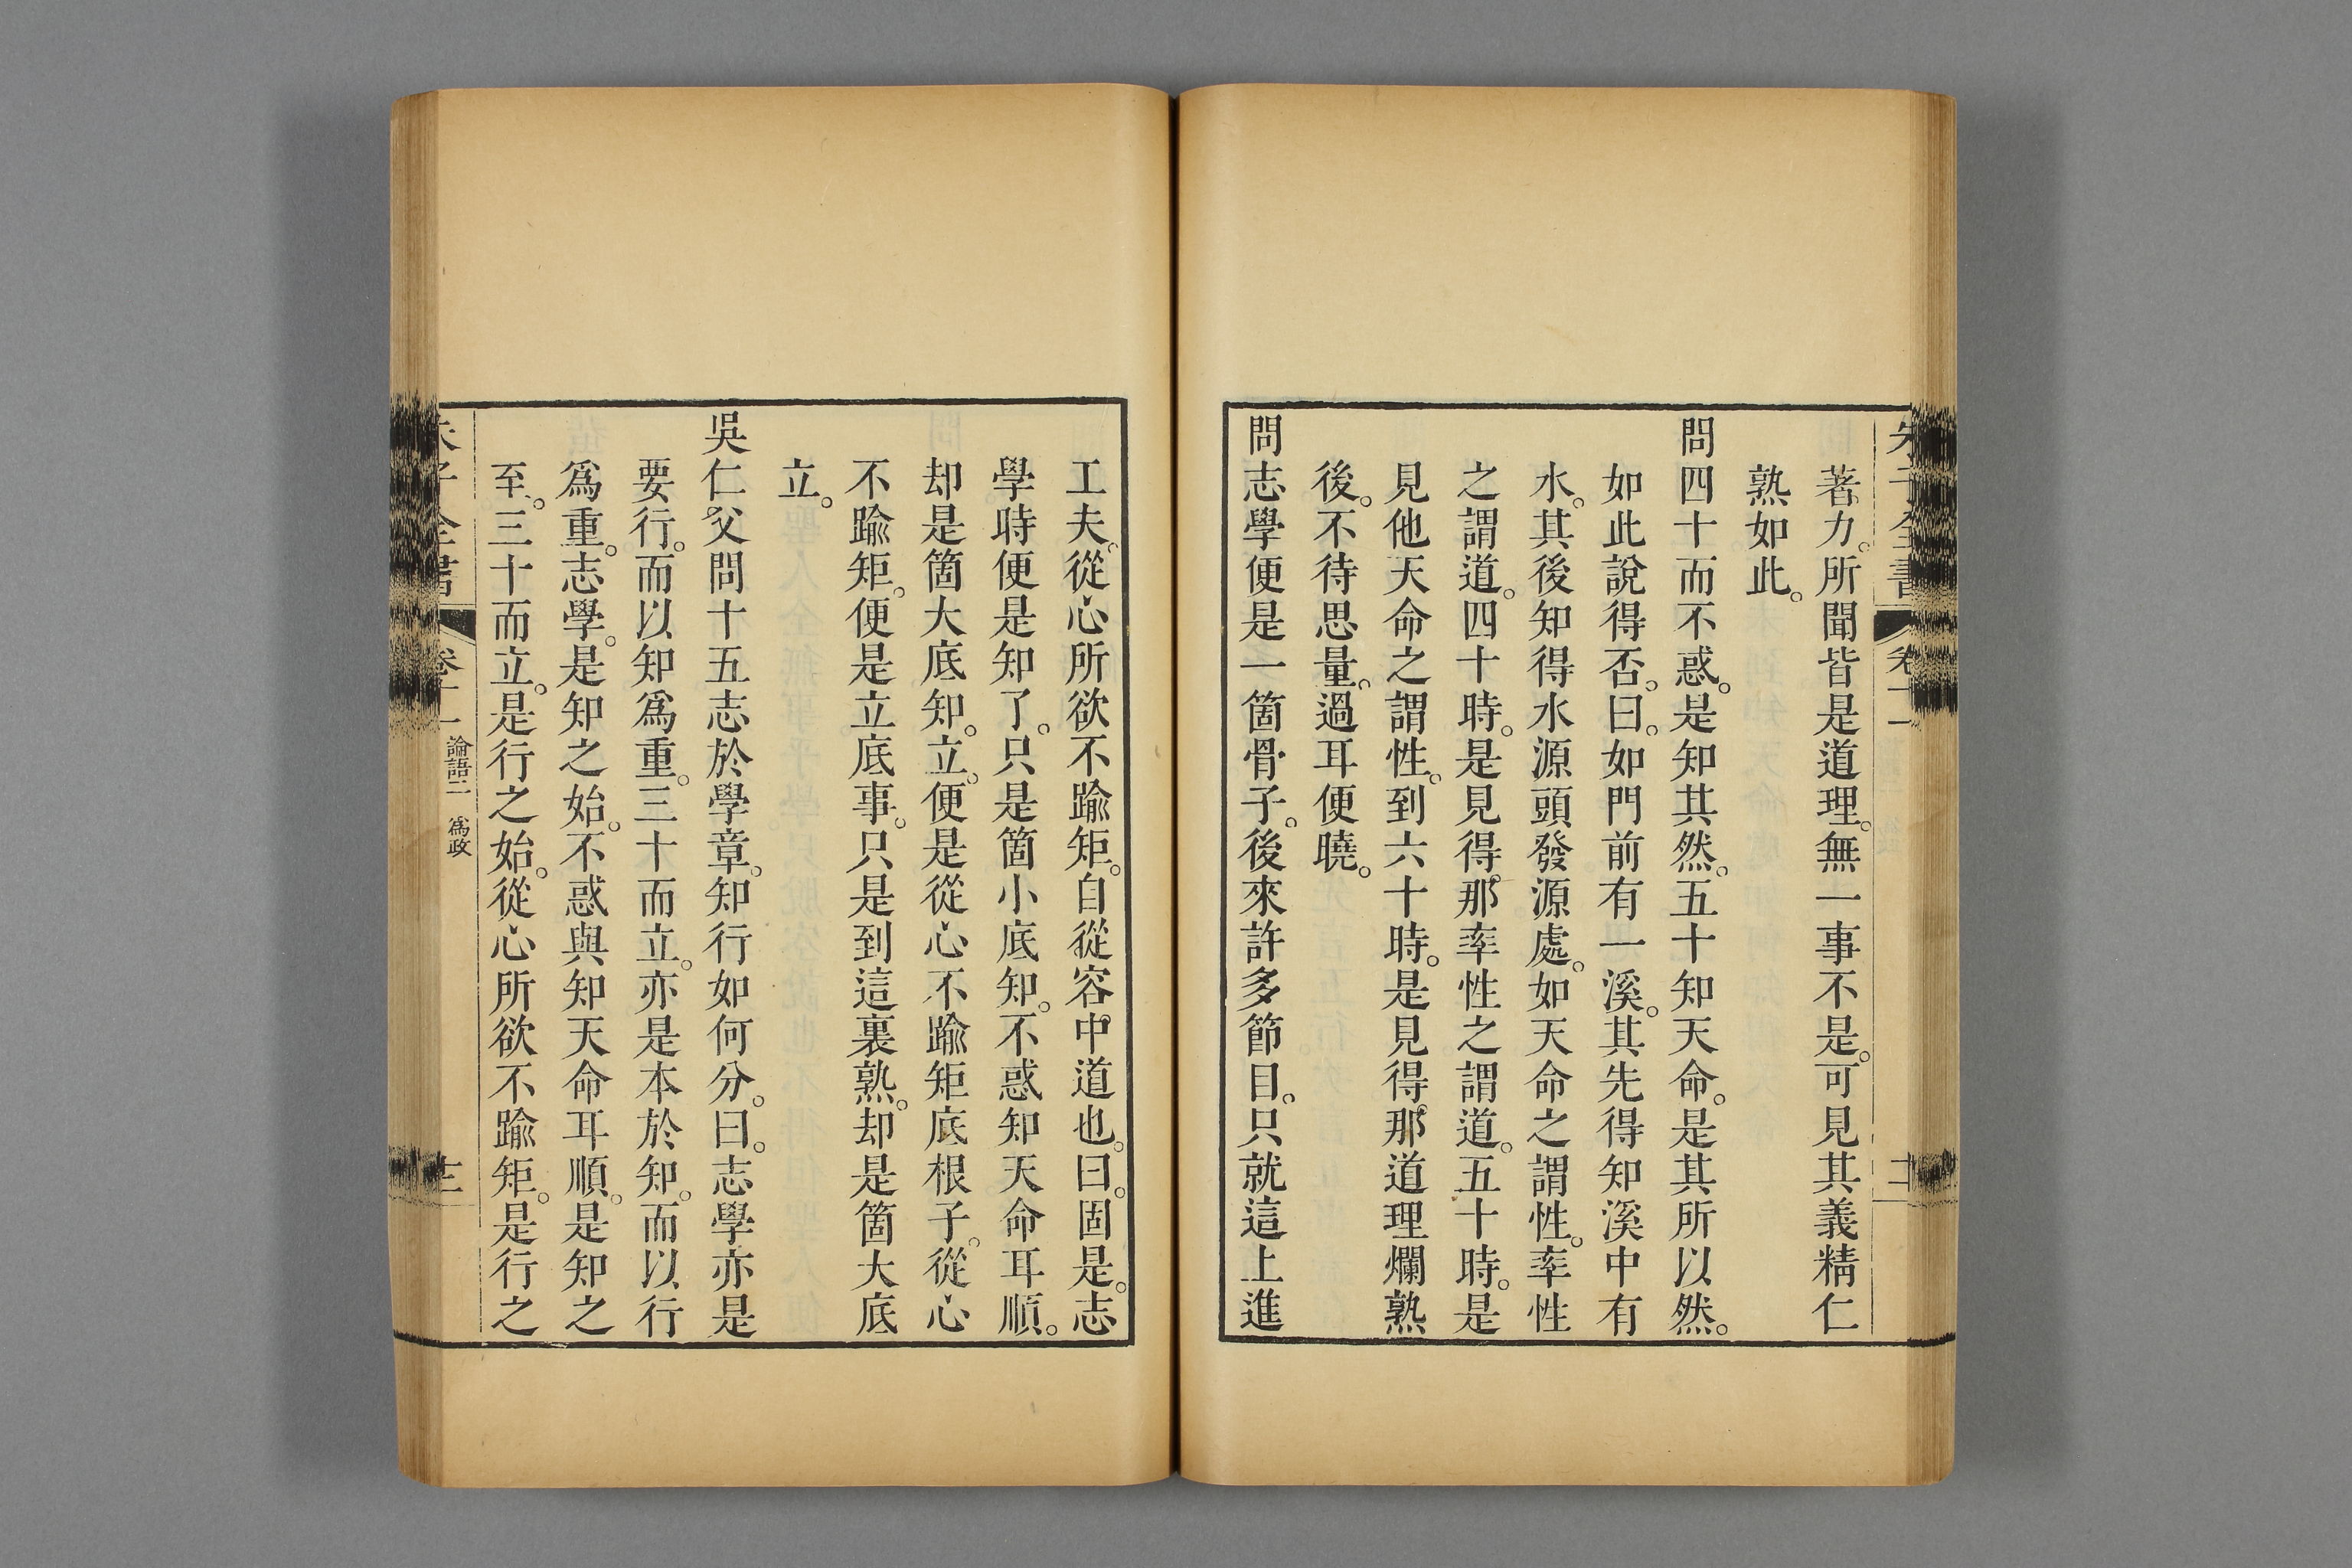 著力。所聞皆是道理。無一事不是。可見其義精仁
熟如此。
問四十而不惑。是知其然。五十知天命。是其所以然。
如此說得否。曰。如門前有一溪。其先得知溪中有
水。其後知得水源頭發源處。如天命之謂性。率性
之謂道。四十時。是見得那率性之謂道。五十時。是
見他天命之謂性。到六十時。是見得那道理爛熟
後。不待思量。過耳便曉。
問志學便是一箇骨子。後來許多節目。只就這上進
工夫。從心所欲不踰矩。自從容中道也。曰。固是。志
學時便是知了。只是箇小底知。不惑知天命耳順。
却是箇大底知。立。便是從心不踰矩底根子。從心
不踰矩。便是立底事。只是到這裏熟。却是箇大底
立。
吳仁父問十五志於學章。知行如何分。曰。志學亦是
要行。而以知爲重。三十而立。亦是本於知。而以行
爲重。志學。是知之始。不惑與知天命耳順。是知之
至。三十而立。是行之始。從心所欲不踰矩。是行之
論語二 爲政